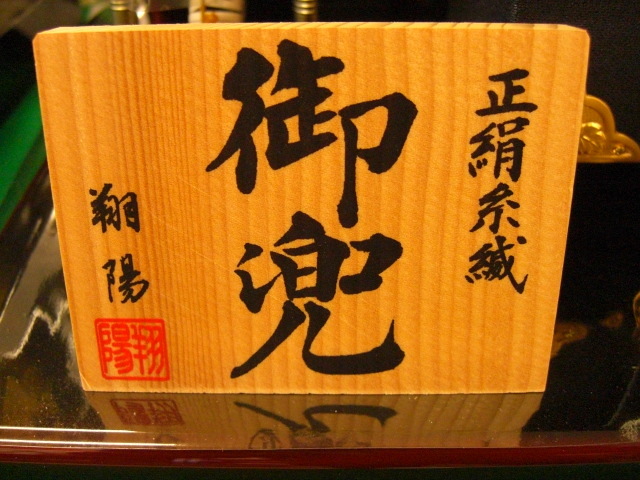 正絹糸縅
御兜
翔陽
翔陽